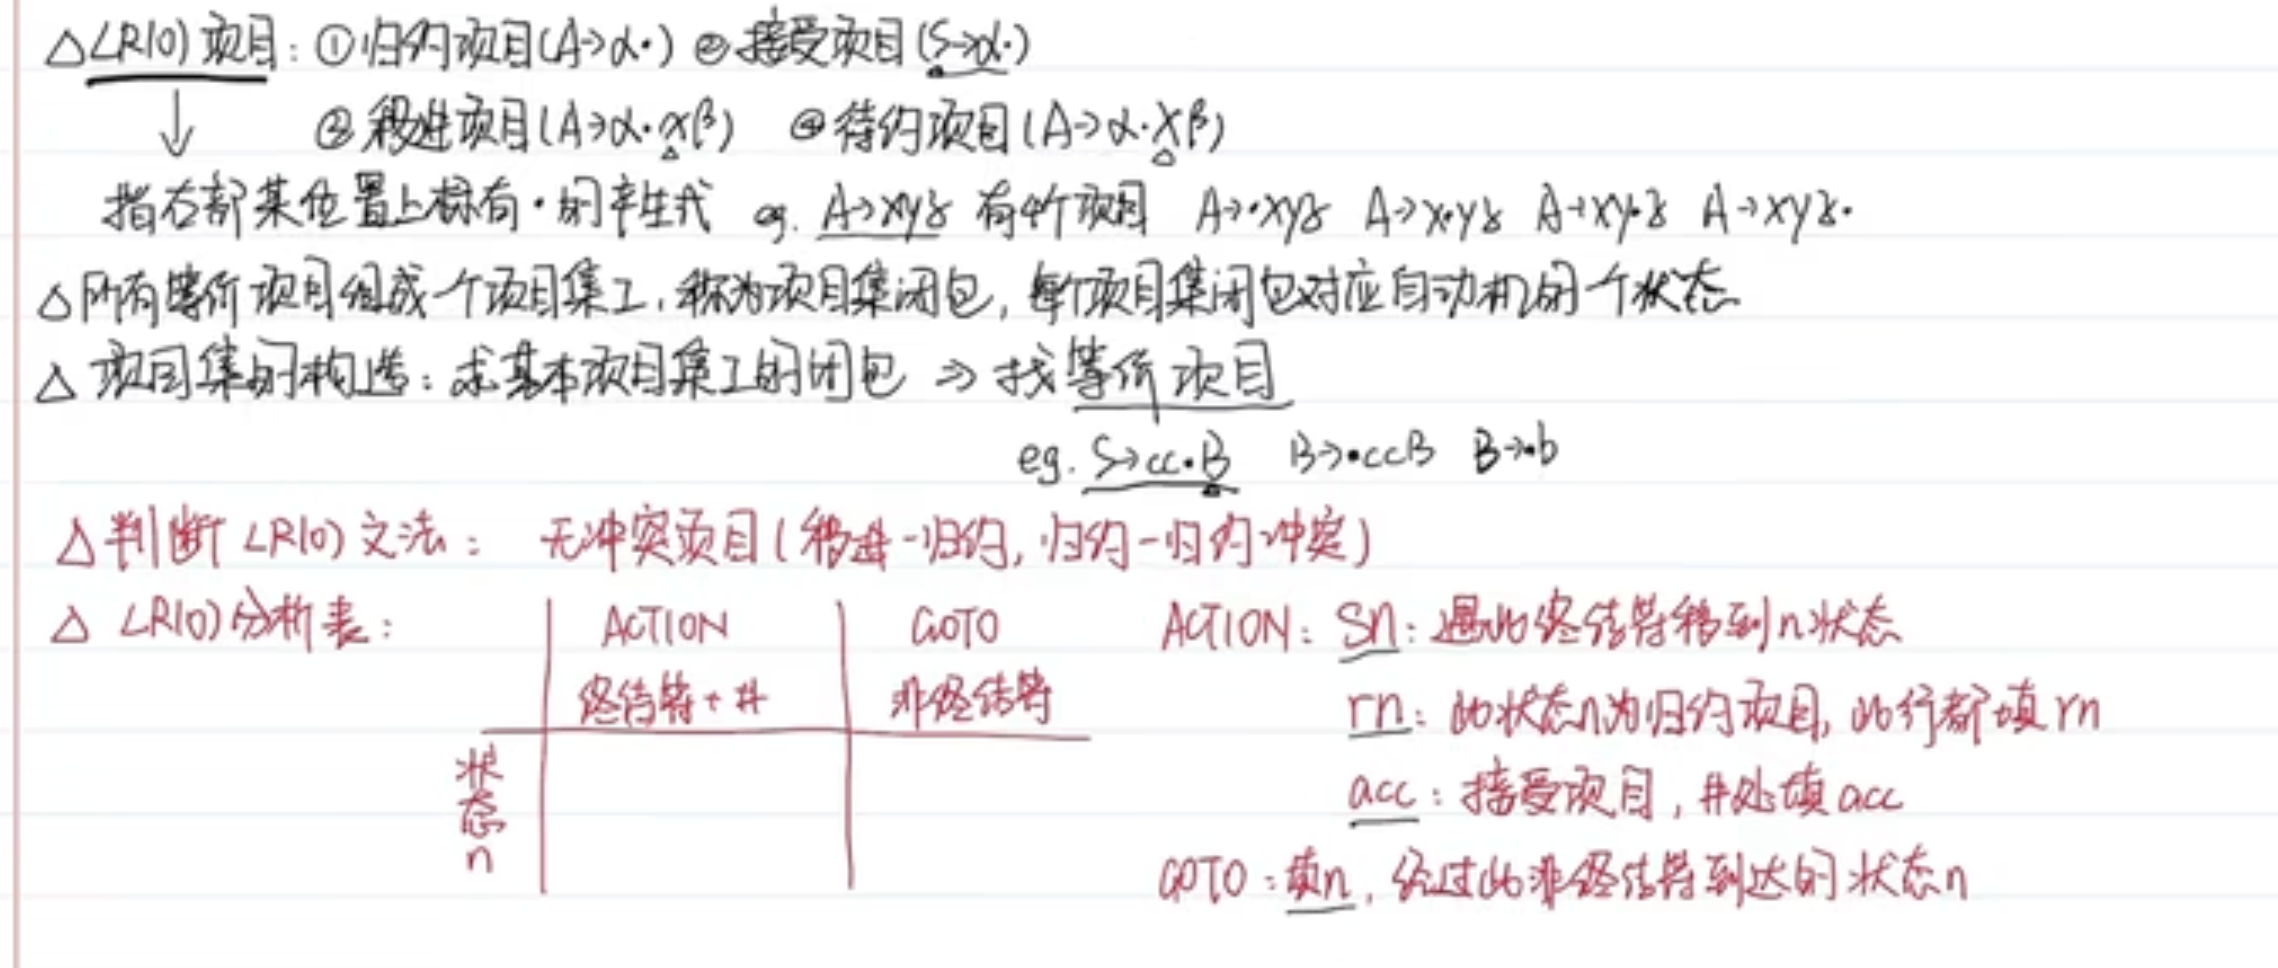 △LR(0)项目：①归约项目(A→α·) ②接受项目(S→α·)
③移进项目(A→α·xβ) ④待约项目(A→α·Xβ)
指右部某位置上标有·的产生式 eg. A→xyz 有4个项目 A→·xyz A→x·yz A→xy·z A→xyz·
△所有等价项目组成一个项目集I，称为项目集闭包，每个项目集闭包对应自动机的一个状态
△项目集的构造：求基本项目集I的闭包 ⇒ 找等价项目
eg. S→cc·B B→·ccB B→·b
△判断LR(0)文法： 无冲突项目(移进-归约，归约-归约冲突)
△ LR(0)分析表：
ACTION GOTO
终结符+# 非终结符
状态n
ACTION：Sn：遇此终结符移到n状态
rn：此状态n为归约项目，此行都填rn
acc：接受项目，#处填acc
GOTO：填n，经过此非终结符到达的状态n